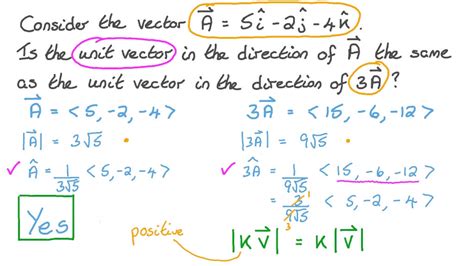 Consider the vector A⃗ = 5î - 2ĵ - 4k̂.
Is the unit vector in the direction of A⃗ the same
as the unit vector in the direction of 3A⃗ ?
A⃗ = < 5, -2, -4 >
|A⃗| = 3√5
✓ Â = 1/3√5 < 5, -2, -4 >
Yes
3A⃗ = < 15, -6, -12 >
|3A⃗| = 9√5
✓ 3Â = 1/9√5 < 15, -6, -12 >
= 3̸ 1/9̸√5 3 < 5, -2, -4 >
positive
|K V⃗| = K |V⃗|